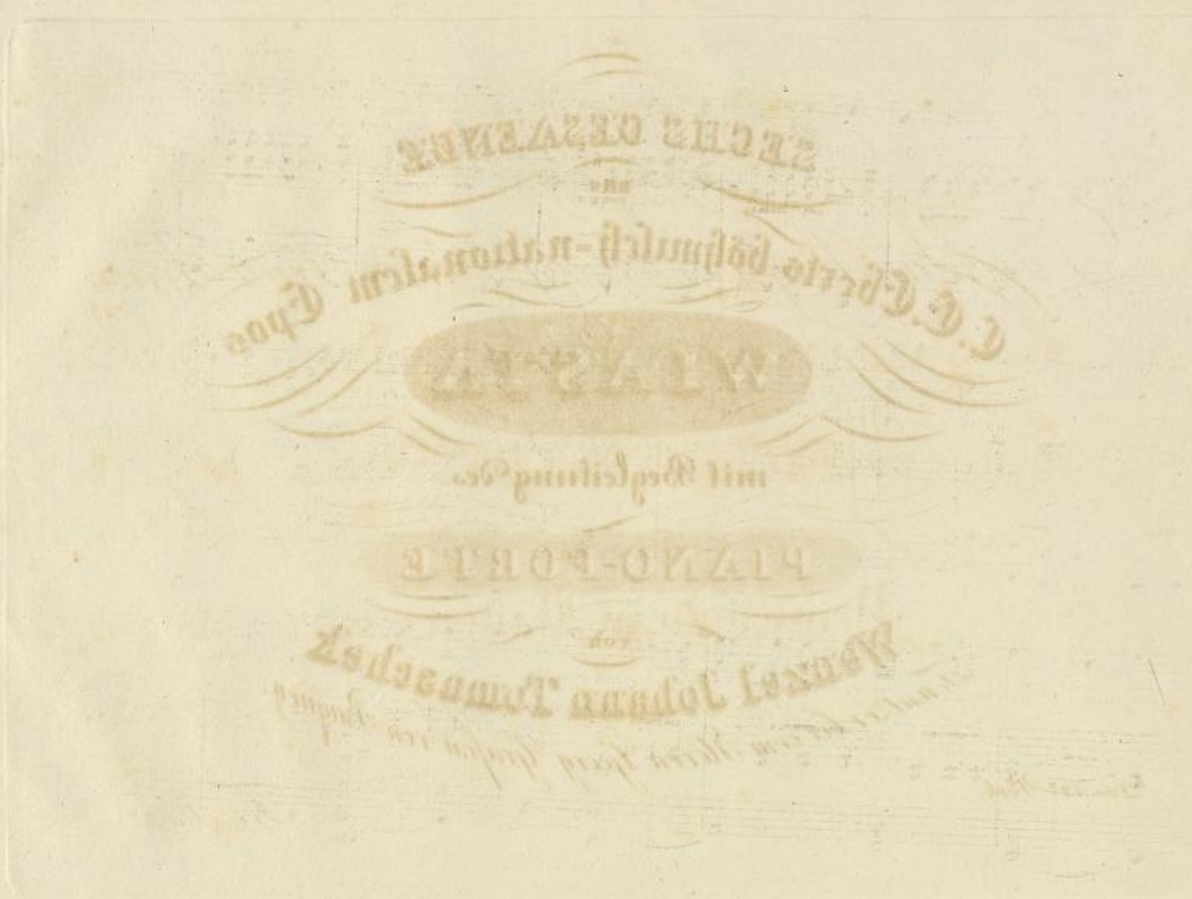 SECHS GESAENGE
aus
C. E. Eberts böhmisch-nationalem Epos
WLASTA
mit Begleitung des
PIANO-FORTE
von
Wenzel Johann Tomaschek
Herrn Georg Grafen von Buquoy